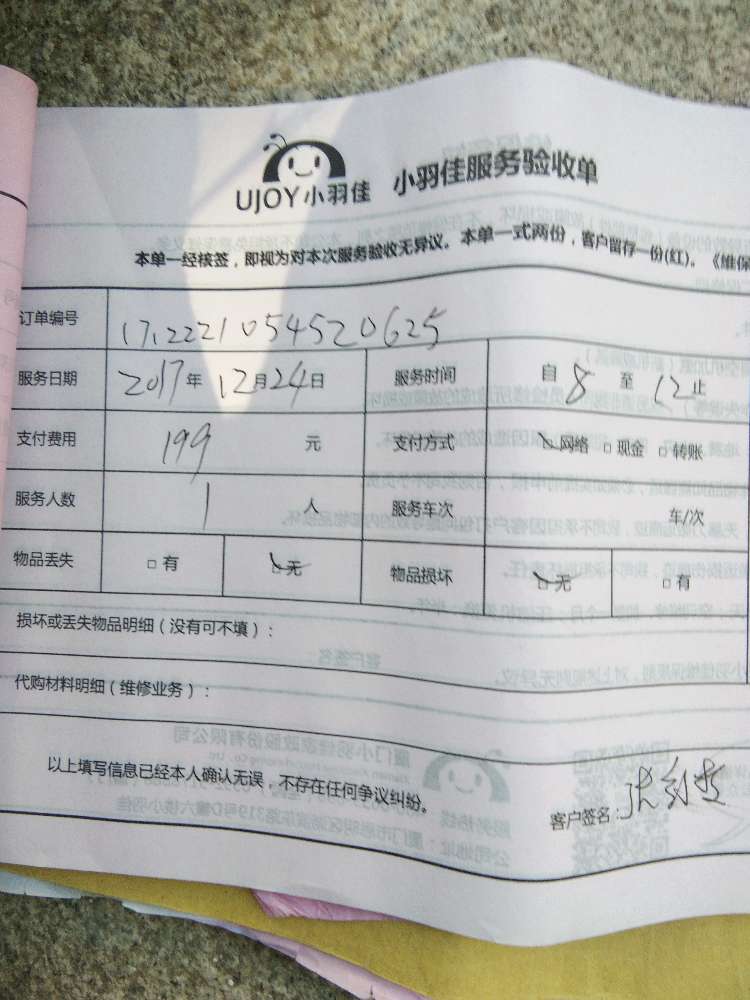 UJOY小羽佳 小羽佳服务验收单
本单一经核签，即视为对本次服务验收无异议。本单一式两份，客户留存一份(红)。《维保
订单编号 171222105452062​5
服务日期 2017年12月24日 服务时间 自8至12止
支付费用 199 元 支付方式 ☑网络 □现金 □转账
服务人数 1 人 服务车次 车/次
物品丢失 □有 ☑无 物品损坏 ☑无 □有
损坏或丢失物品明细（没有可不填）：
代购材料明细（维修业务）：
以上填写信息已经本人确认无误，不存在任何争议纠纷。
客户签名：